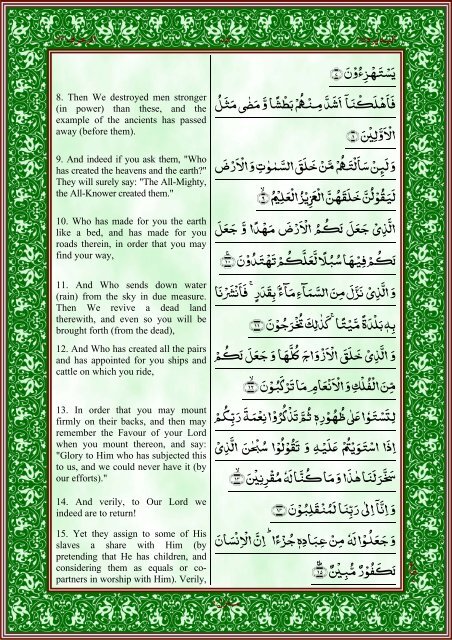 يَسْتَهْزِءُوْنَ ۝٧
8. Then We destroyed men stronger
(in power) than these, and the
example of the ancients has passed
away (before them).
فَاَهْلَكْنَاۤ اَشَدَّ مِنْهُمْ بَطْشًا وَّ مَضٰى مَثَلُ
الْاَوَّلِيْنَ ۝٨
9. And indeed if you ask them, "Who
has created the heavens and the earth?"
They will surely say: "The All-Mighty,
the All-Knower created them."
وَلَئِنْ سَاَلْتَهُمْ مَّنْ خَلَقَ السَّمٰوٰتِ وَالْاَرْضَ
لَيَقُوْلُنَّ خَلَقَهُنَّ الْعَزِيْزُ الْعَلِيْمُ ۝٩
10. Who has made for you the earth
like a bed, and has made for you
roads therein, in order that you may
find your way,
الَّذِيْ جَعَلَ لَكُمُ الْاَرْضَ مَهْدًا وَّ جَعَلَ
لَكُمْ فِيْهَا سُبُلًا لَّعَلَّكُمْ تَهْتَدُوْنَ ۝١٠
11. And Who sends down water
(rain) from the sky in due measure.
Then We revive a dead land
therewith, and even so you will be
brought forth (from the dead),
وَالَّذِيْ نَزَّلَ مِنَ السَّمَآءِ مَآءًۢ بِقَدَرٍ ۚ فَاَنْشَرْنَا
بِهٖ بَلْدَةً مَّيْتًا ۚ كَذٰلِكَ تُخْرَجُوْنَ ۝١١
12. And Who has created all the pairs
and has appointed for you ships and
cattle on which you ride,
وَالَّذِيْ خَلَقَ الْاَزْوَاجَ كُلَّهَا وَ جَعَلَ لَكُمْ
مِّنَ الْفُلْكِ وَالْاَنْعَامِ مَا تَرْكَبُوْنَ ۝١٢
13. In order that you may mount
firmly on their backs, and then may
remember the Favour of your Lord
when you mount thereon, and say:
"Glory to Him who has subjected this
to us, and we could never have it (by
our efforts)."
لِتَسْتَوٗا عَلٰى ظُهُوْرِهٖ ثُمَّ تَذْكُرُوْا نِعْمَةَ رَبِّكُمْ
اِذَا اسْتَوَيْتُمْ عَلَيْهِ وَ تَقُوْلُوْا سُبْحٰنَ الَّذِيْ
سَخَّرَ لَنَا هٰذَا وَ مَا كُنَّا لَهٗ مُقْرِنِيْنَ ۝١٣
14. And verily, to Our Lord we
indeed are to return!
وَ اِنَّاۤ اِلٰى رَبِّنَا لَمُنْقَلِبُوْنَ ۝١٤
15. Yet they assign to some of His
slaves a share with Him (by
pretending that He has children, and
considering them as equals or co-
partners in worship with Him). Verily,
وَجَعَلُوْا لَهٗ مِنْ عِبَادِهٖ جُزْءًا ؕ اِنَّ الْاِنْسَانَ
لَكَفُوْرٌ مُّبِيْنٌ ۝١٥